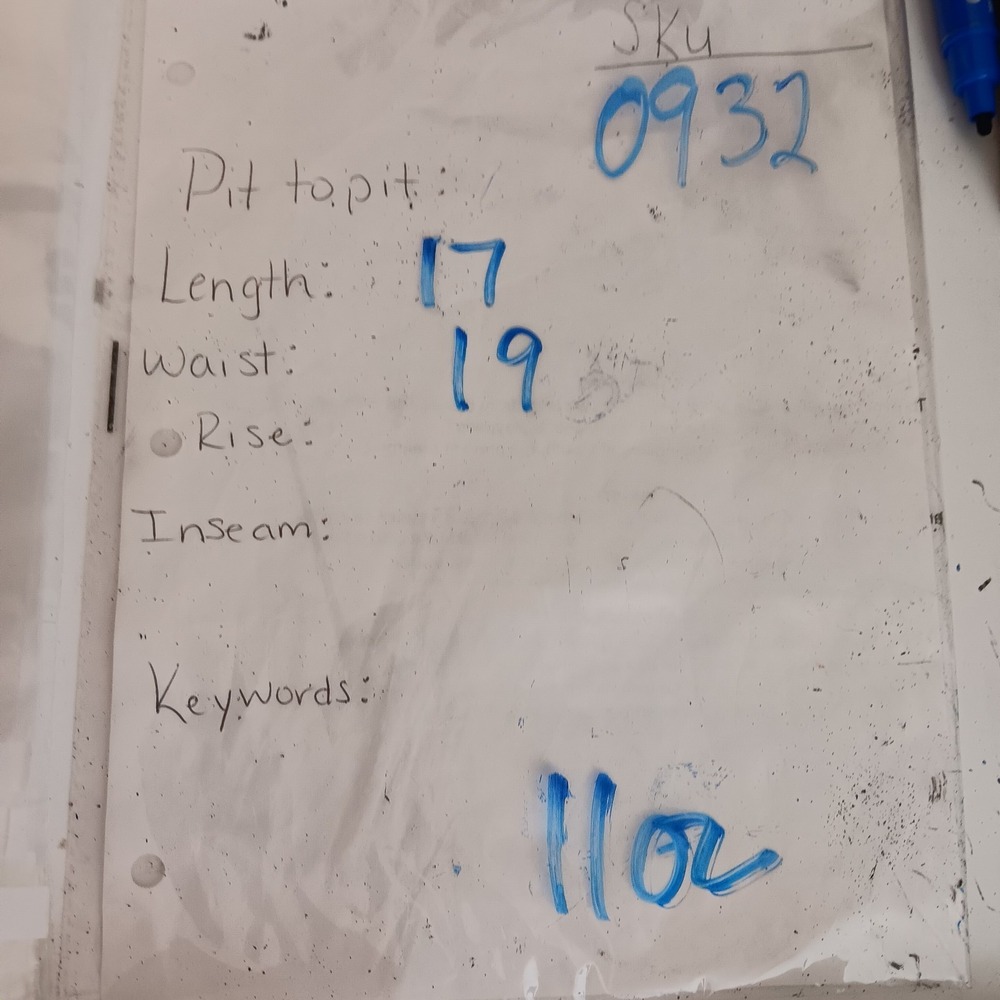 SKu
0932
Pit to pit:
Length: 17
Waist: 19
Rise:
Inseam:
Keywords:
11oz